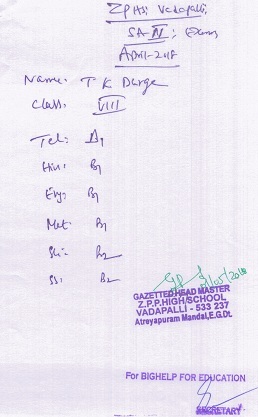 ZPHS; Vadapalli,
SA-IV; Exams
April-2018
Name: T K Durga
Class: VIII
Tel: B1
Hin: B1
Eng: B1
Mat: B1
Sci: B2
SS: B2
/05/2018
GAZETTED HEAD MASTER
Z.P.P.HIGH SCHOOL
VADAPALLI - 533 237
Atreyapuram Mandal,E.G.Dt.
For BIGHELP FOR EDUCATION
SECRETARY